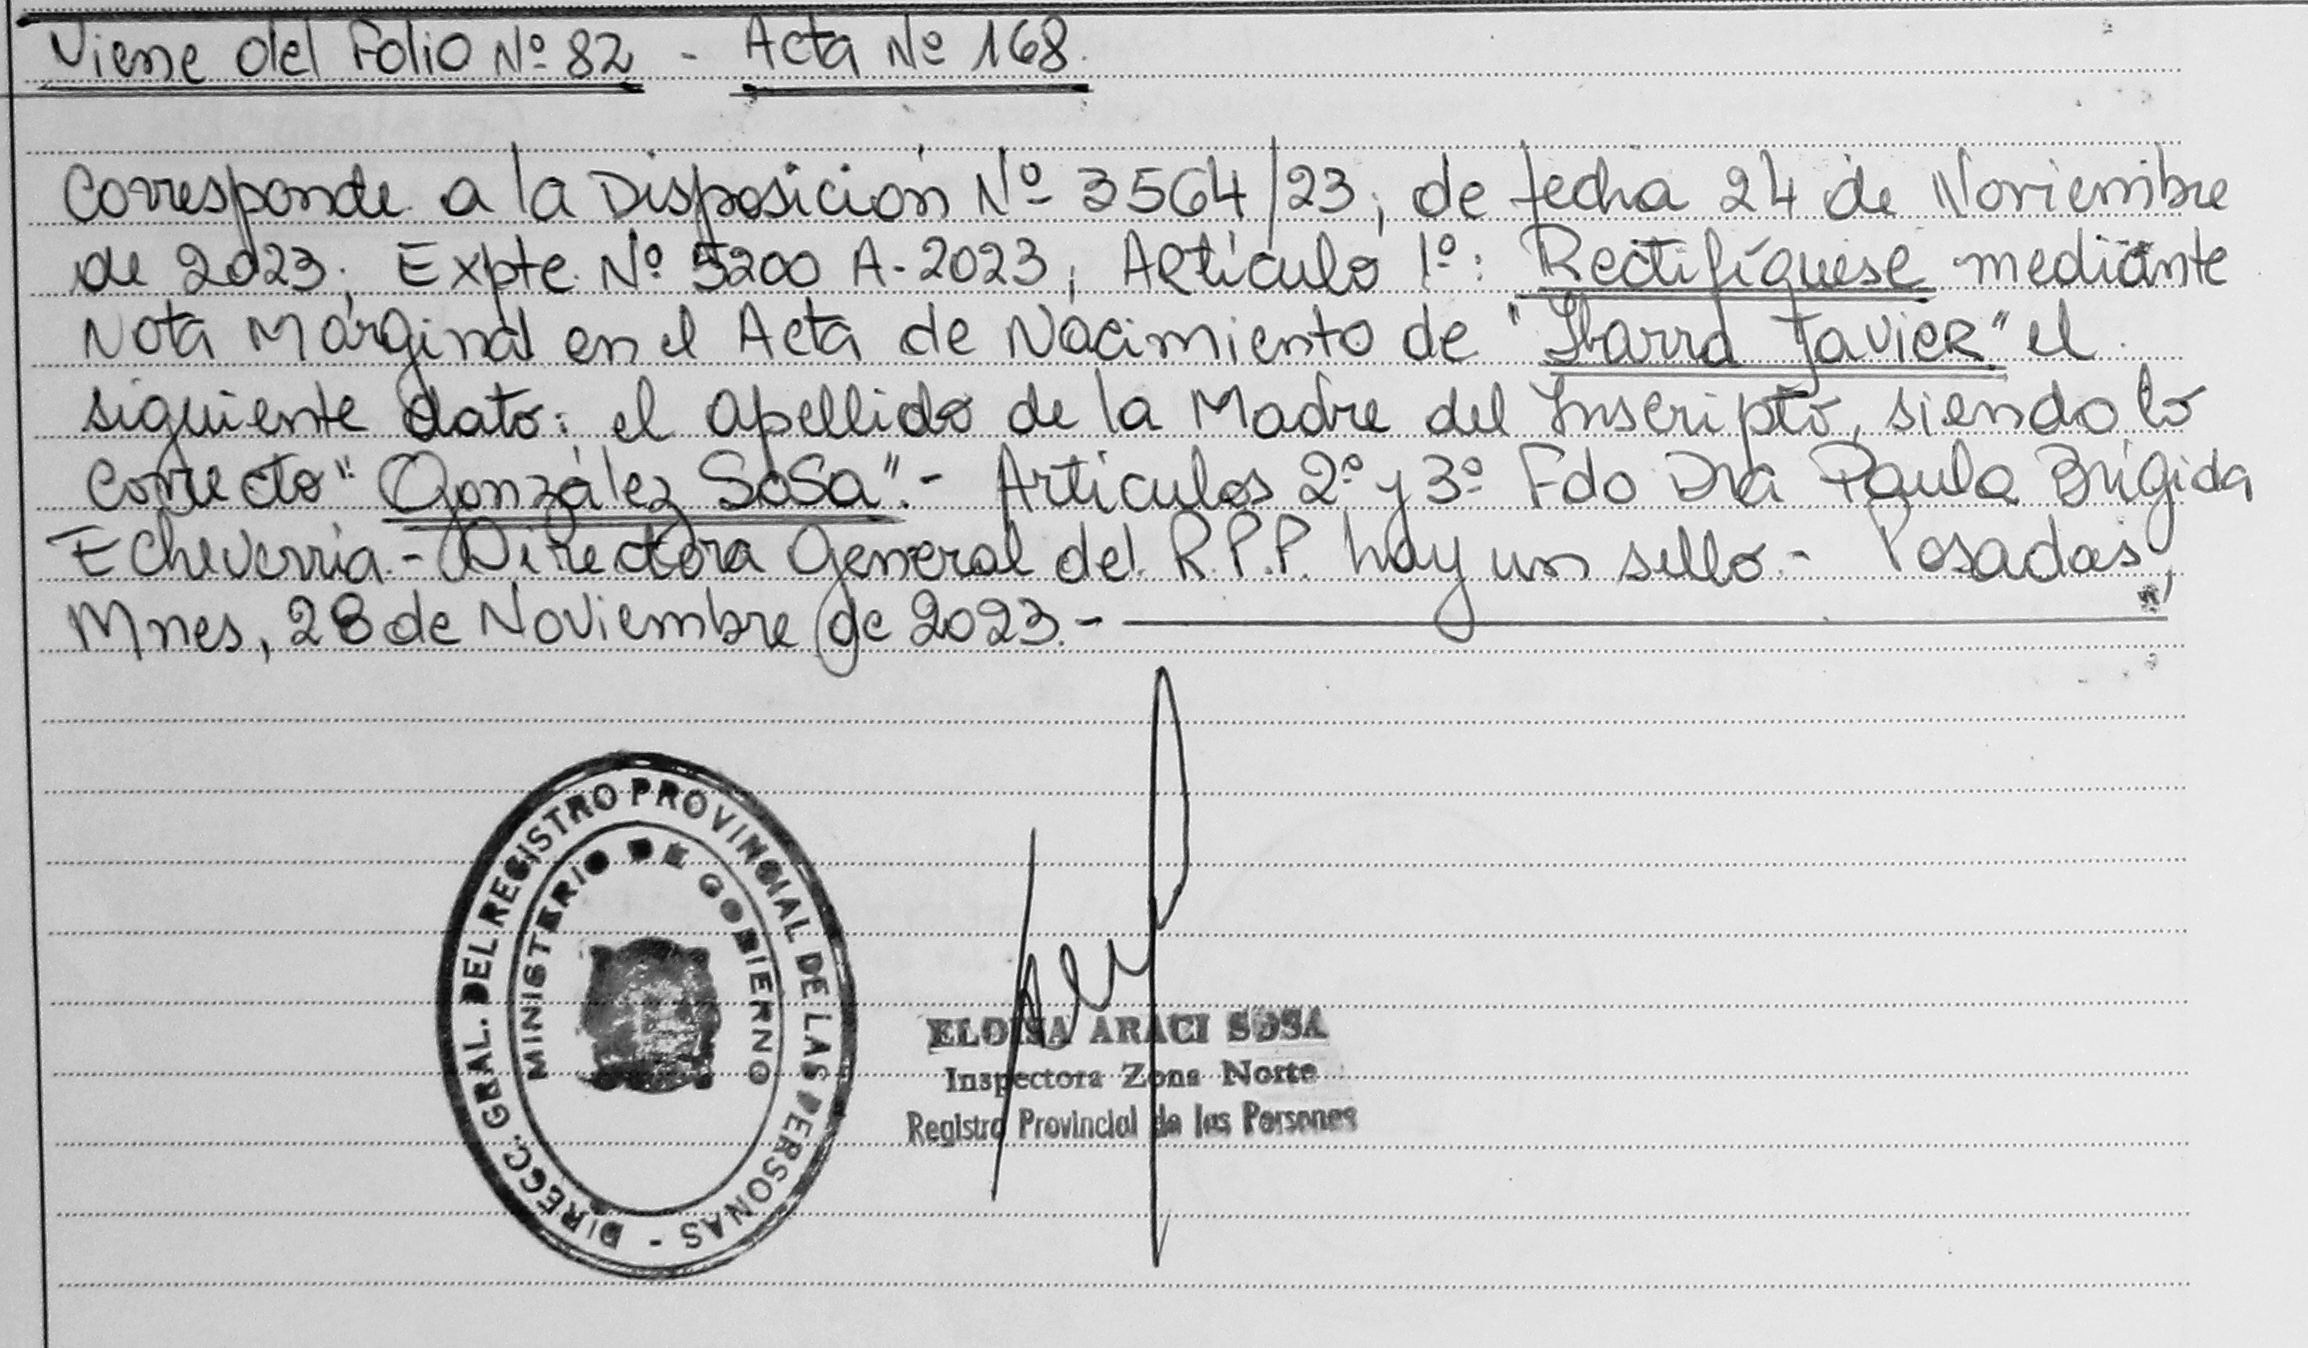 Viene del Folio Nº 82 - Acta Nº 168.
Corresponde a la Disposición Nº 3564/23, de fecha 24 de Noviembre
de 2023, Expte. Nº 5200 A-2023, Artículo 1º: Rectifíquese mediante
Nota Marginal en el Acta de Nacimiento de "Ibarra Javier" el
siguiente dato: el apellido de la Madre del Inscripto, siendo lo
correcto "González Sosa".- Artículos 2º y 3º Fdo Dra Paula Brígida
Echeverria.- Directora General del R.P.P. hay un sello.- Posadas,
Mnes, 28 de Noviembre de 2023.-
DIRECC. GRAL. DEL REGISTRO PROVINCIAL DE LAS PERSONAS -
MINISTERIO DE GOBIERNO
ELOISA ARACI SOSA
Inspectora Zona Norte
Registro Provincial de las Personas